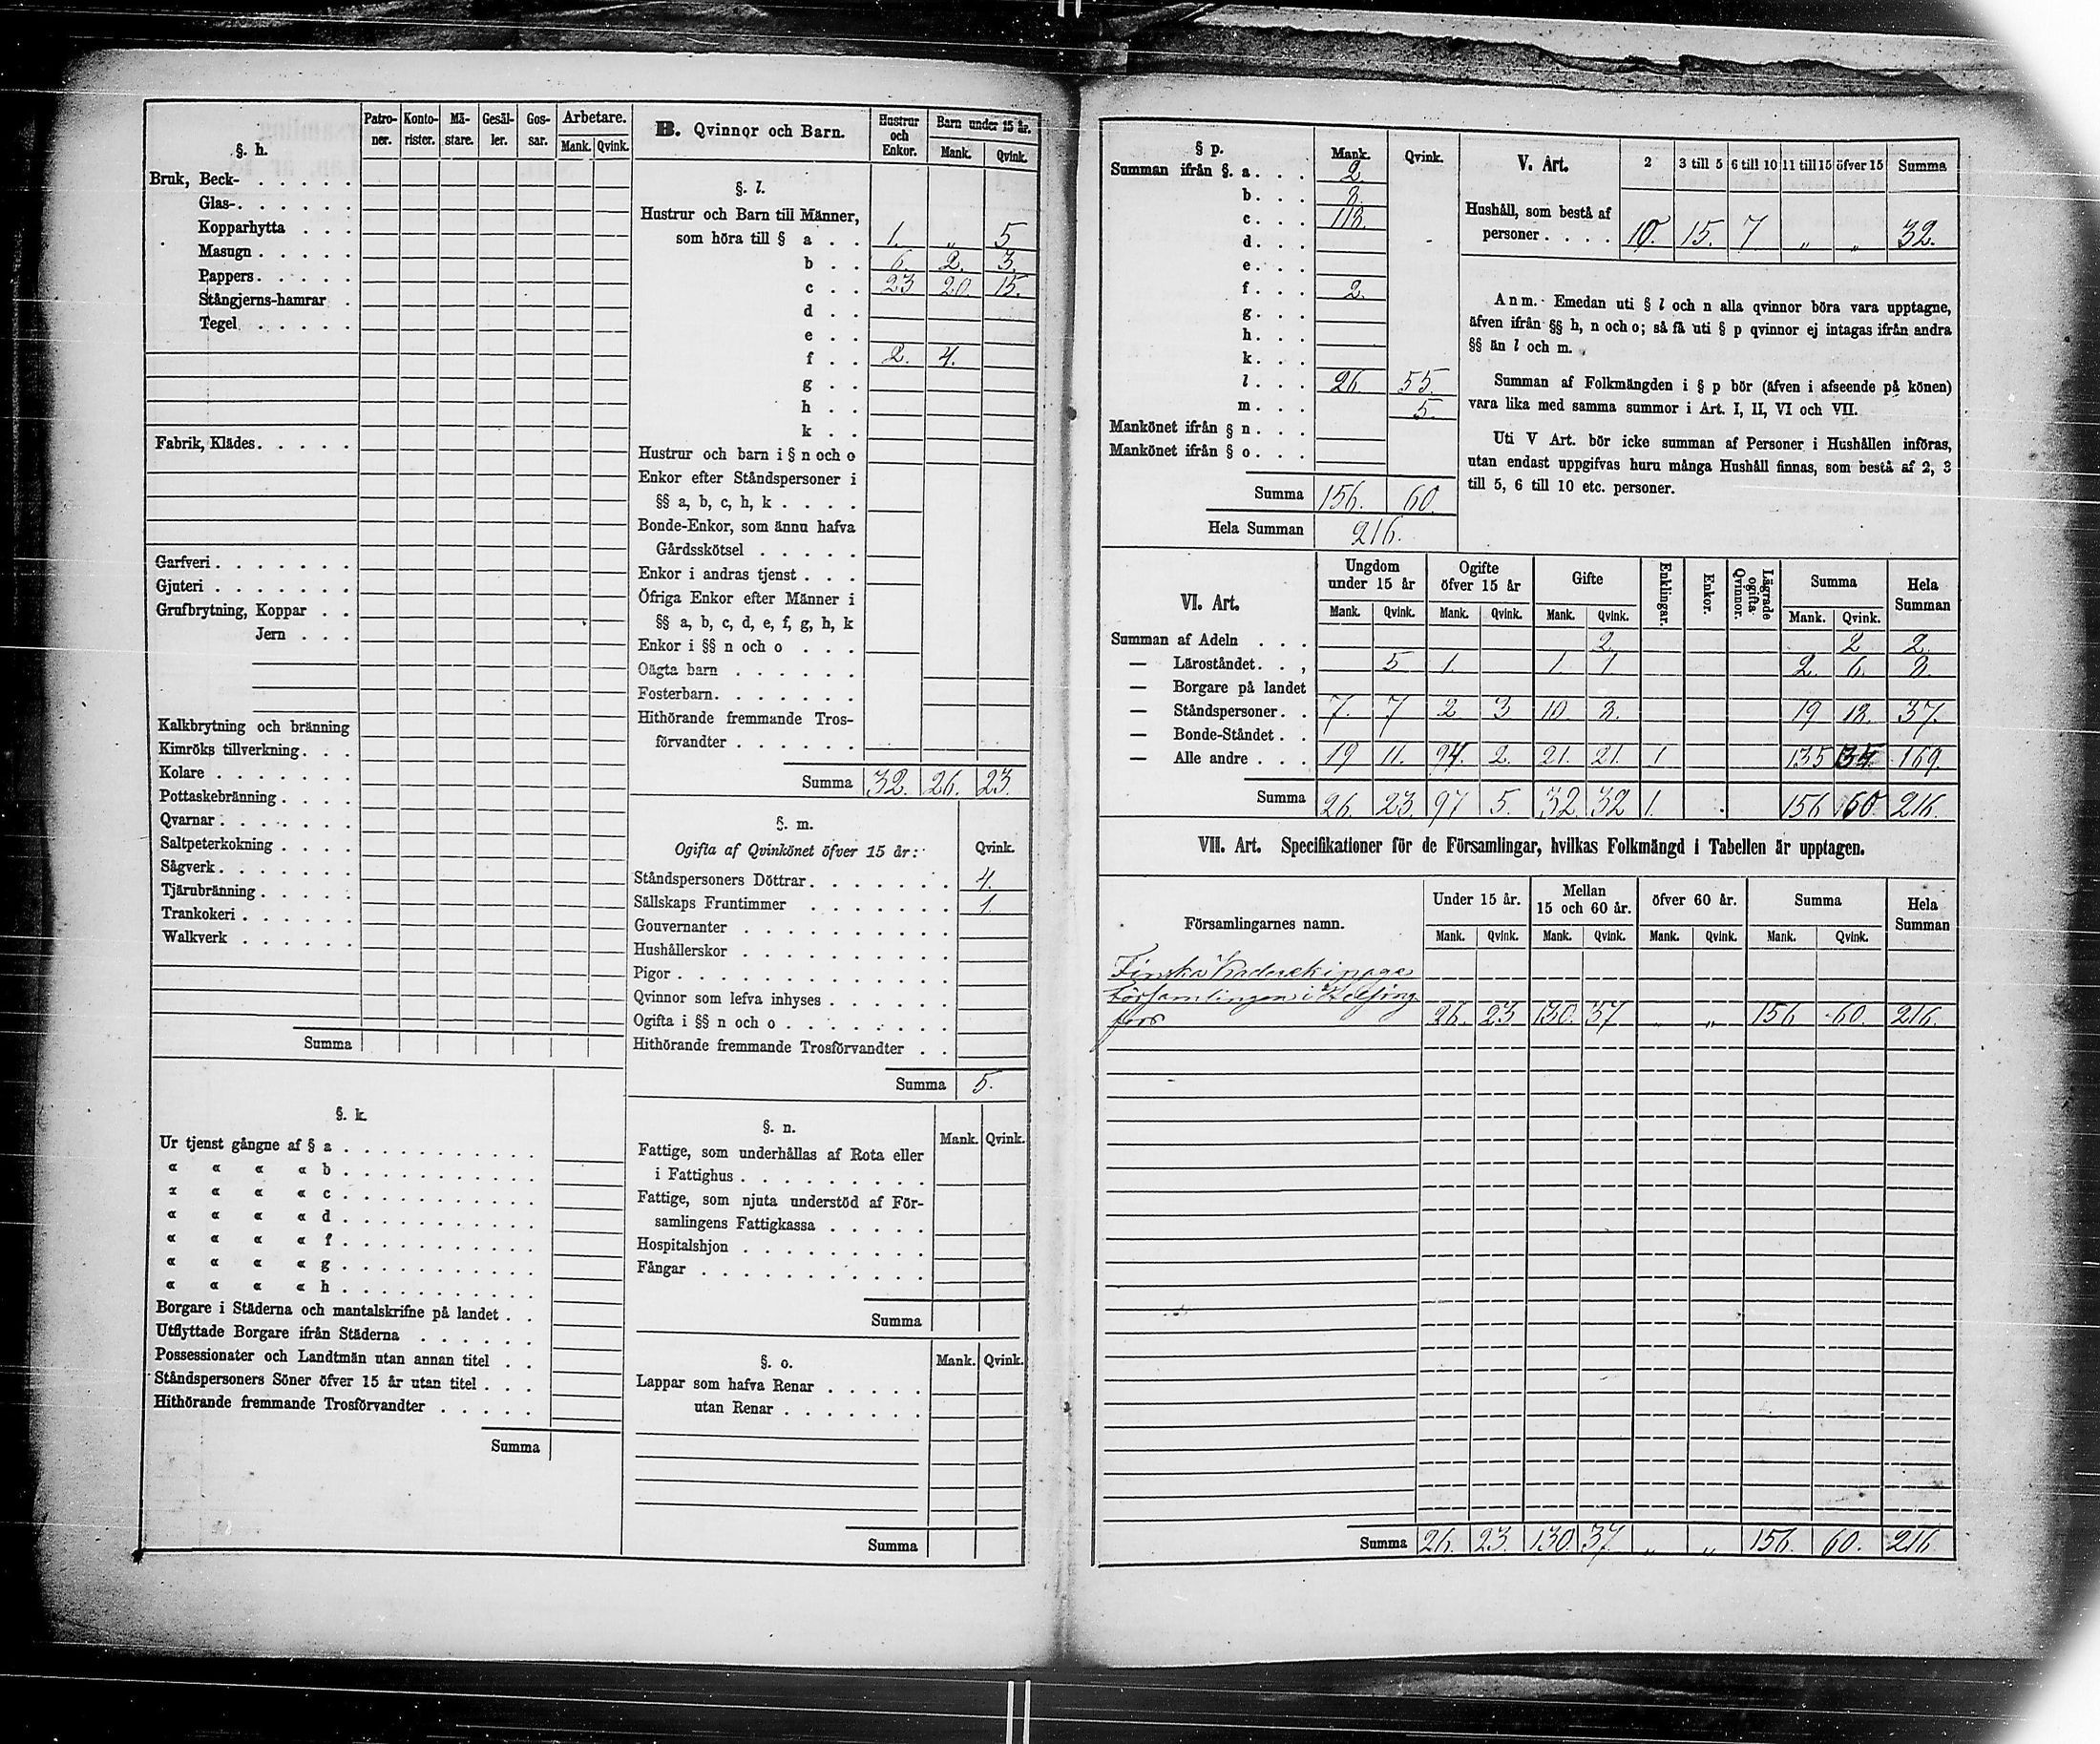 §. h.
Patro-ner. Konto-rister. Mä-stare. Gesäl-ler. Gos-sar. Arbetare. Mank. Qvink.
Bruk, Beck- . . . . .
Glas- . . . . .
Kopparhytta . . .
Masugn . . . . .
Pappers . . . . .
Stångjerns-hamrar .
Tegel . . . . .
Fabrik, Klädes. . . . .
Garfveri . . . . . . .
Gjuteri . . . . . . .
Grufbrytning, Koppar . .
Jern . . .
Kalkbrytning och bränning
Kimröks tillverkning . . .
Kolare . . . . . . .
Pottaskebränning . . . .
Qvarnar . . . . . . .
Saltpeterkokning . . . .
Sågverk . . . . . . .
Tjärubränning . . . . .
Trankokeri . . . . . .
Walkverk . . . . . .
Summa
§. k.
Ur tjenst gångne af § a . . . . . . . . . . .
« « « « b . . . . . . . . . . .
« « « « c . . . . . . . . . . .
« « « « d . . . . . . . . . . .
« « « « f . . . . . . . . . . .
« « « « g . . . . . . . . . . .
« « « « h . . . . . . . . . . .
Borgare i Städerna och mantalskrifne på landet . .
Utflyttade Borgare ifrån Städerna . . . . . .
Possessionater och Landtmän utan annan titel . .
Ståndspersoners Söner öfver 15 år utan titel . . .
Hithörande fremmande Trosförvandter . . . . .
Summa
B. Qvinnor och Barn. Hustrur och Enkor. Barn under 15 år. Mank. Qvink.
§. l.
Hustrur och Barn till Männer,
som höra till § a . . 1. „ 5
b . . 6. 2. 3.
c . . 23 20. 15.
d . .
e . .
f . . 2. 4.
g . .
h . .
k . .
Hustrur och barn i § n och o
Enkor efter Ståndspersoner i
§§ a, b, c, h, k . . . .
Bonde-Enkor, som ännu hafva
Gårdsskötsel . . . . .
Enkor i andras tjenst . . .
Öfriga Enkor efter Männer i
§§ a, b, c, d, e, f, g, h, k
Enkor i §§ n och o . . .
Oägta barn . . . . . .
Fosterbarn . . . . . . .
Hithörande fremmande Tros-
förvandter . . . . . .
Summa 32. 26. 23.
§. m.
Ogifta af Qvinkönet öfver 15 år: Qvink.
Ståndspersoners Döttrar . . . . . . . 4.
Sällskaps Fruntimmer . . . . . . . 1.
Gouvernanter . . . . . . . . . .
Hushållerskor . . . . . . . . . .
Pigor . . . . . . . . . . . . .
Qvinnor som lefva inhyses . . . . . .
Ogifta i §§ n och o . . . . . . . .
Hithörande fremmande Trosförvandter . .
Summa 5.
§. n. Mank. Qvink.
Fattige, som underhållas af Rota eller
i Fattighus . . . . . . . . .
Fattige, som njuta understöd af För-
samlingens Fattigkassa . . . . .
Hospitalshjon . . . . . . . . .
Fångar . . . . . . . . . . .
Summa
§. o. Mank. Qvink.
Lappar som hafva Renar . . . . .
utan Renar . . . . . . .
Summa
§ p. Mank. Qvink.
Summan ifrån §. a . . . 2.
b . . . 8.
c . . . 118.
d . . .
e . . .
f . . . 2.
g . . .
h . . .
k . . .
l . . . 26 55.
m . . . 5.
Mankönet ifrån § n . . .
Mankönet ifrån § o . . .
Summa 156. 60.
Hela Summan 216.
V. Art. 2 3 till 5 6 till 10 11 till 15 öfver 15 Summa
Hushåll, som bestå af
personer . . . . 10. 15. 7 „ „ 32.
Anm. Emedan uti § l och n alla qvinnor böra vara upptagne,
äfven ifrån §§ h, n och o; så få uti § p qvinnor ej intagas ifrån andra
§§ än l och m.
Summan af Folkmängden i § p bör (äfven i afseende på könen)
vara lika med samma summor i Art. I, II, VI och VII.
Uti V Art. bör icke summan af Personer i Hushållen införas,
utan endast uppgifvas huru många Hushåll finnas, som bestå af 2, 3
till 5, 6 till 10 etc. personer.
VI. Art. Ungdom under 15 år Ogifte öfver 15 år Gifte Enklingar. Enkor. Lägrade ogifta Qvinnor. Summa Hela Summan
Mank. Qvink. Mank. Qvink. Mank. Qvink. Mank. Qvink.
Summan af Adeln . . . 2. 2 2.
— Läroståndet . . , 5 1. 1. 1. 2. 6. 8.
— Borgare på landet
— Ståndspersoner . . 7. 7 2 3 10. 8. 19 18. 37.
— Bonde-Ståndet . .
— Alle andre . . . 19 11. 94. 2. 21. 21. 1 135 34. 169.
Summa 26. 23. 97 5. 32. 32 1. 156 60. 216.
VII. Art. Specifikationer för de Församlingar, hvilkas Folkmängd i Tabellen är upptagen.
Församlingarnes namn. Under 15 år. Mellan 15 och 60 år. öfver 60 år. Summa Hela Summan
Mank. Qvink. Mank. Qvink. Mank. Qvink. Mank. Qvink.
Finska Kaderekipage
församlingen i Helsing
fors 26. 23 130. 37 „ „ 156 60. 216.
Summa 26. 23. 130 37 „ „ 156. 60. 216